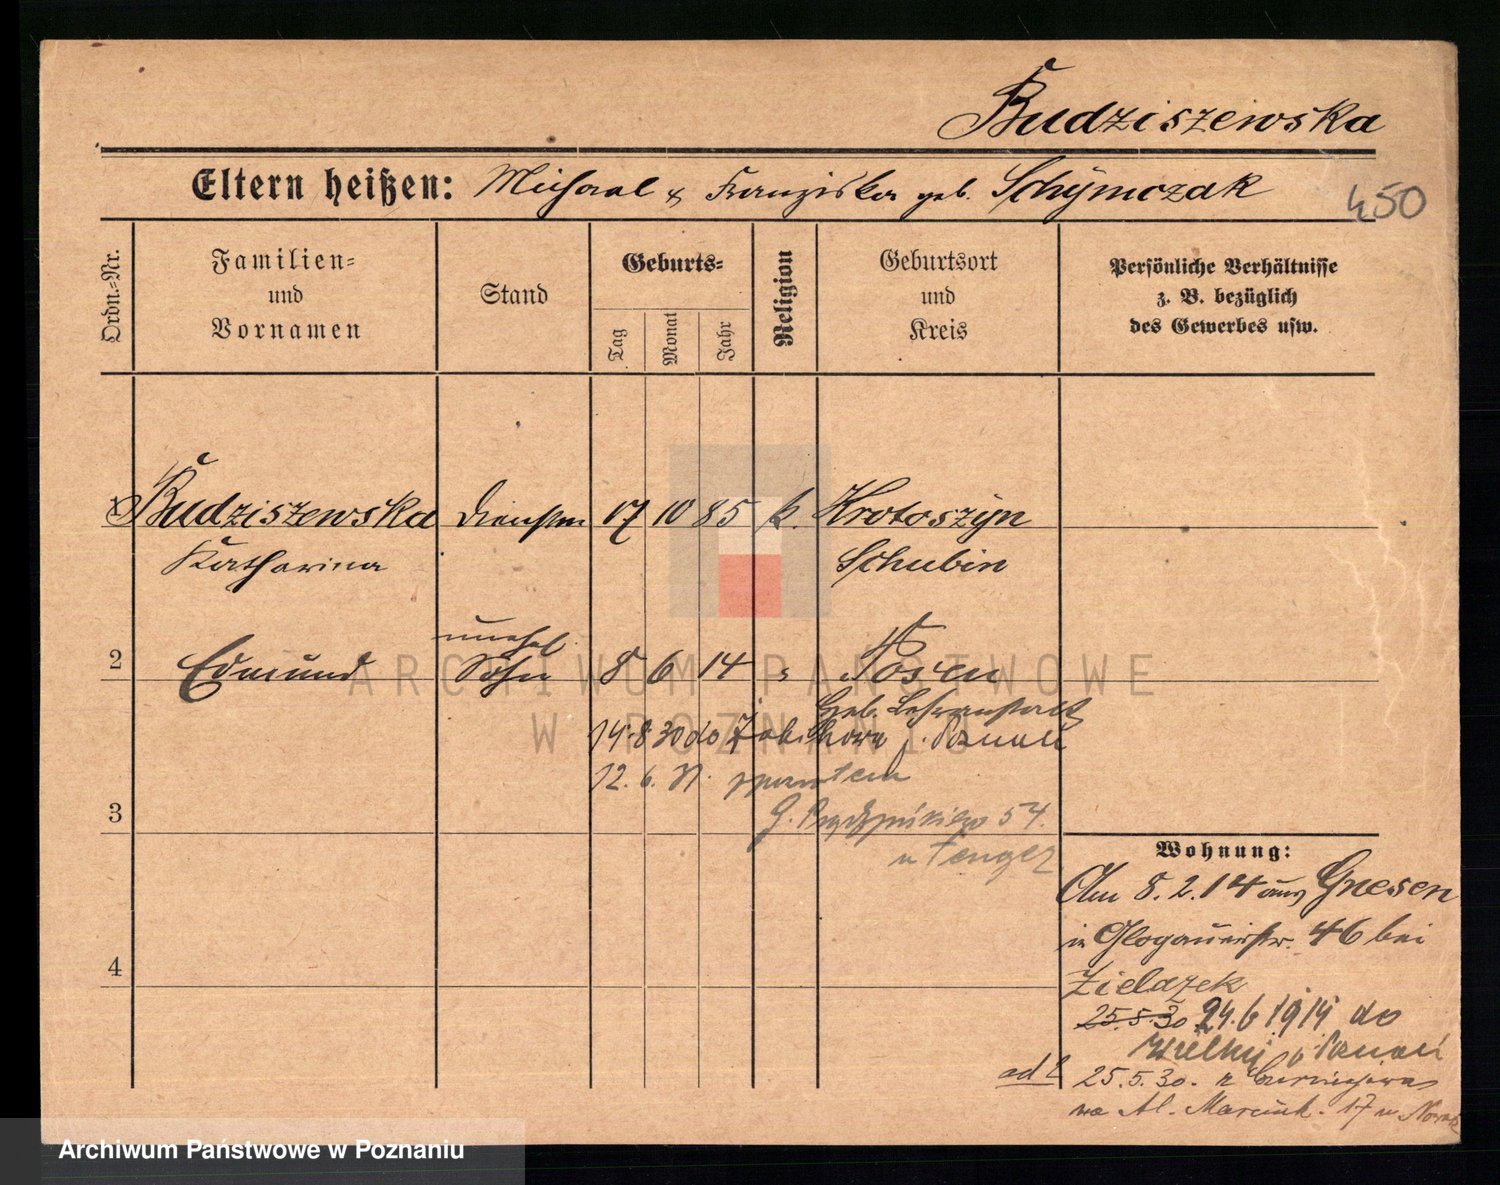 Budziszewska
Eltern heißen: Michael & Franziska geb. Schymczak
450
Ordn.=Nr.
Familien=
und
Vornamen
Stand
Geburts=
Tag
Monat
Jahr
Religion
Geburtsort
und
Kreis
Persönliche Verhältnisse
z. B. bezüglich
des Gewerbes usw.
1 Budziszewska 17 10 85 k. Krotoszyn
Katharina Schubin
unehel
2 Edmund Sohn 8 6 14 " Posen
14.8 30 do Zabikowa p. Poznań
12. 6. 31.
3 54.
4
Wohnung:
Am 8. 2. 14 aus Gnesen
in Glogauerstr. 46 bei
Zielazek
25.5.30 24.6 1914 do
p. Poznań
ad 2 25.5.30. z
na Al. Marcink. 17 u
ARCHIWUM PAŃSTWOWE
W POZNANIU
Archiwum Państwowe w Poznaniu